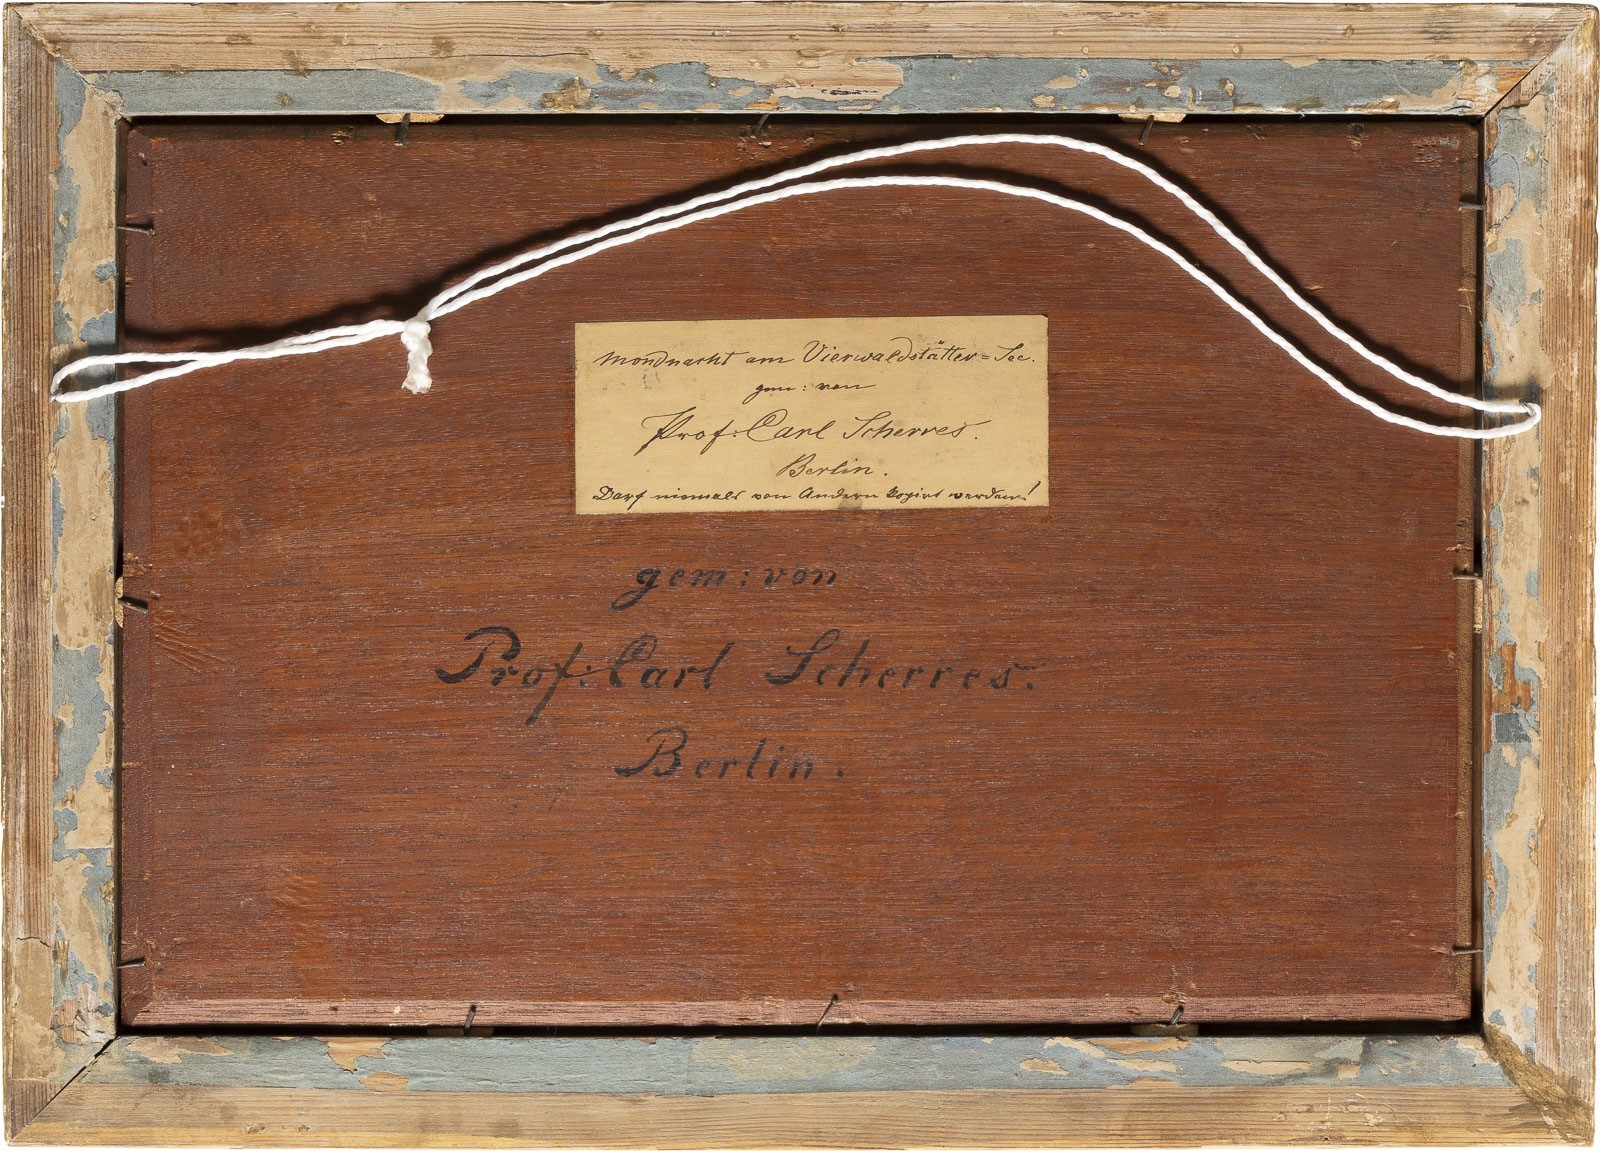 Mondnacht am Vierwaldstätter=See.
gem: von
Prof: Carl Scherres.
Berlin.
Darf niemals von Andern kopirt werden!
gem: von
Prof: Carl Scherres.
Berlin.